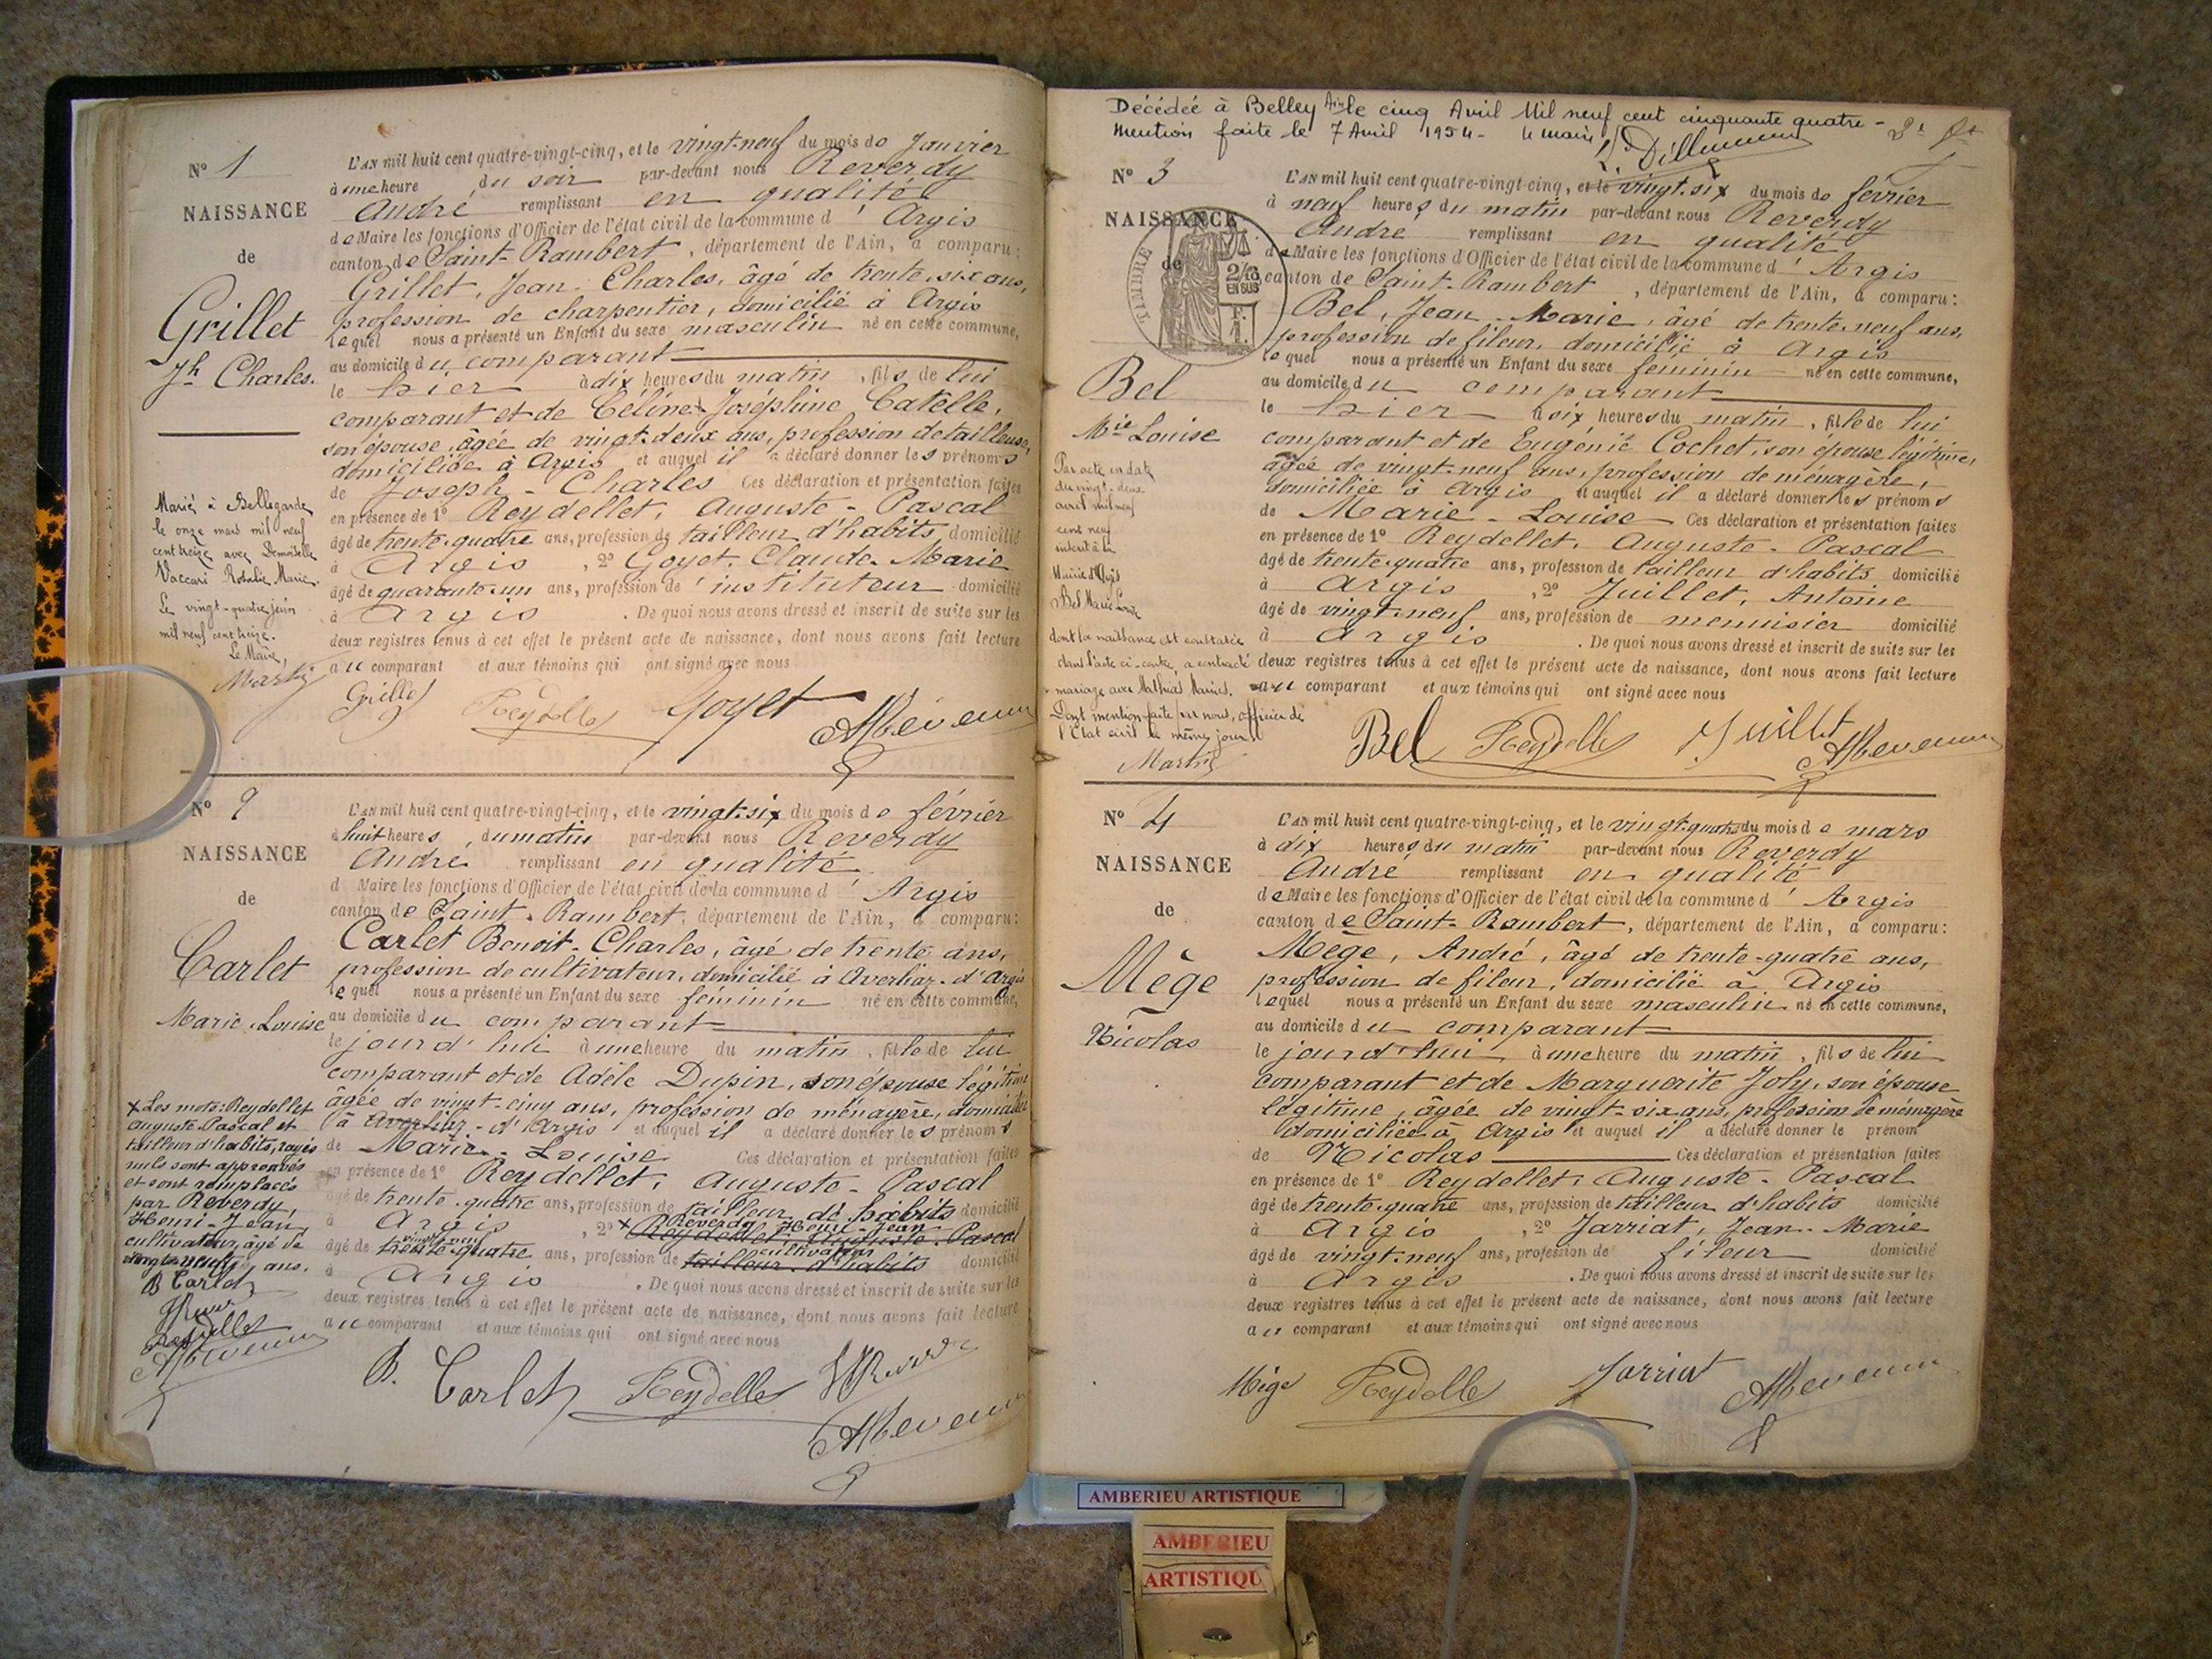 N° 1
NAISSANCE
de
Grillet
Jh Charles.
Marié à Bellegarde
le onze mars mil neuf
cent treize avec Demoiselle
Vaccari Rosalie Marie.
Le vingt-quatre juin
mil neuf cent treize.
Le Maire,
L'AN mil huit cent quatre-vingt-cinq, et le vingt-neuf du mois de Janvier
à une heure du soir par-devant nous Reverdy
André remplissant en qualité
de Maire les fonctions d'Officier de l'état civil de la commune d' Argis
canton de Saint-Rambert, département de l'Ain, a comparu:
Grillet, Jean-Charles, âgé de trente-six ans,
profession de charpentier, domicilié à Argis
lequel nous a présenté un Enfant du sexe masculin né en cette commune,
au domicile du comparant
le hier à dix heures du matin, fils de lui
comparant et de Céline Joséphine Catelle,
son épouse, âgée de vingt-deux ans, profession de tailleuse,
domiciliée à Argis et auquel il a déclaré donner les prénoms
de Joseph-Charles Ces déclaration et présentation faites
en présence de 1° Reydellet, Auguste-Pascal
âgé de trente-quatre ans, profession de tailleur d'habits, domicilié
à Argis, 2° Goyet, Claude-Marie
âgé de quarante-un ans, profession de instituteur domicilié
à Argis. De quoi nous avons dressé et inscrit de suite sur les
deux registres tenus à cet effet le présent acte de naissance, dont nous avons fait lecture
au comparant et aux témoins qui ont signé avec nous
Grillet Reydellet Goyet
N° 2
NAISSANCE
de
Carlet
Marie-Louise
x Les mots: Reydellet
Auguste-Pascal et
tailleur d'habits, rayés
nuls sont approuvés
et sont remplacés
par Reverdy,
Henri-Jean,
cultivateur, âgé de
vingt-neuf ans.
B Carlet
Reydellet
L'AN mil huit cent quatre-vingt-cinq, et le vingt-six du mois de février
à huit heures du matin par-devant nous Reverdy
André remplissant en qualité
d Maire les fonctions d'Officier de l'état civil de la commune d' Argis
canton de Saint-Rambert, département de l'Ain, a comparu:
Carlet Benoit-Charles, âgé de trente ans,
profession de cultivateur, domicilié à Averliaz-d'Argis
lequel nous a présenté un Enfant du sexe féminin né en cette commune,
au domicile du comparant
le jourd'hui à une heure du matin, fille de lui
comparant et de Adèle Dupin, son épouse légitime
âgée de vingt-cinq ans, profession de ménagère, domiciliée
à Averliaz-d'Argis et auquel il a déclaré donner les prénoms
de Marie-Louise Ces déclaration et présentation faites
en présence de 1° Reydellet, Auguste-Pascal
âgé de trente-quatre ans, profession de tailleur d'habits domicilié
Reverdy Henri-Jean
à Argis, 2° x Reydellet, Auguste-Pascal
vingt-neuf cultivateur
âgé de trente-quatre ans, profession de tailleur d'habits domicilié
à Argis. De quoi nous avons dressé et inscrit de suite sur les
deux registres tenus à cet effet le présent acte de naissance, dont nous avons fait lecture
au comparant et aux témoins qui ont signé avec nous
B. Carlet Reydellet
Décédée à Belley Ain le cinq Avril Mil neuf cent cinquante quatre-
Mention faite le 7 Avril 1954- le maire
N° 3
NAISSANCE
de
TIMBRE
2/10
EN SUS
Bel
Mie Louise
Par acte en date
du vingt-deux
avril mil neuf
cent neuf
inscrit à la
Mairie d'Argis
Bel Marie Louise
dont la naissance est constatée
dans l'acte ci-contre a contracté
mariage avec Mathias Marius.
Dont mention faite par nous, officier de
l'Etat civil le même jour.
L'AN mil huit cent quatre-vingt-cinq, et le vingt-six du mois de février
à neuf heures du matin par-devant nous Reverdy
André remplissant en qualité
de Maire les fonctions d'Officier de l'état civil de la commune d' Argis
canton de Saint-Rambert, département de l'Ain, a comparu:
Bel, Jean-Marie, âgé de trente-neuf ans,
profession de fileur, domicilié à Argis
lequel nous a présenté un Enfant du sexe féminin né en cette commune,
au domicile du comparant
le hier à six heures du matin, fille de lui
comparant et de Eugénie Cochet, son épouse légitime,
âgée de vingt-neuf ans, profession de ménagère,
domiciliée à Argis et auquel il a déclaré donner les prénoms
de Marie-Louise Ces déclaration et présentation faites
en présence de 1° Reydellet, Auguste-Pascal
âgé de trente-quatre ans, profession de tailleur d'habits domicilié
à Argis, 2° Juillet, Antoine
âgé de vingt-neuf ans, profession de menuisier domicilié
à Argis. De quoi nous avons dressé et inscrit de suite sur les
deux registres tenus à cet effet le présent acte de naissance, dont nous avons fait lecture
au comparant et aux témoins qui ont signé avec nous
Bel Reydellet Juillet
N° 4
NAISSANCE
de
Mège
Nicolas
L'AN mil huit cent quatre-vingt-cinq, et le vingt-quatre du mois de mars
à dix heures du matin par-devant nous Reverdy
André remplissant en qualité
de Maire les fonctions d'Officier de l'état civil de la commune d' Argis
canton de Saint-Rambert, département de l'Ain, a comparu:
Mège, André, âgé de trente-quatre ans,
profession de fileur, domicilié à Argis
lequel nous a présenté un Enfant du sexe masculin né en cette commune,
au domicile du comparant
le jourd'hui à une heure du matin, fils de lui
comparant et de Marguerite Joly, son épouse
légitime, âgée de vingt-six ans, profession de ménagère
domiciliée à Argis et auquel il a déclaré donner le prénom
de Nicolas Ces déclaration et présentation faites
en présence de 1° Reydellet, Auguste-Pascal
âgé de trente-quatre ans, profession de tailleur d'habits domicilié
à Argis, 2° Jarriat, Jean-Marie
âgé de vingt-neuf ans, profession de fileur domicilié
à Argis. De quoi nous avons dressé et inscrit de suite sur les
deux registres tenus à cet effet le présent acte de naissance, dont nous avons fait lecture
au comparant et aux témoins qui ont signé avec nous
Mège Reydellet Jarriat
AMBERIEU ARTISTIQUE
AMBERIEU
ARTISTIQU